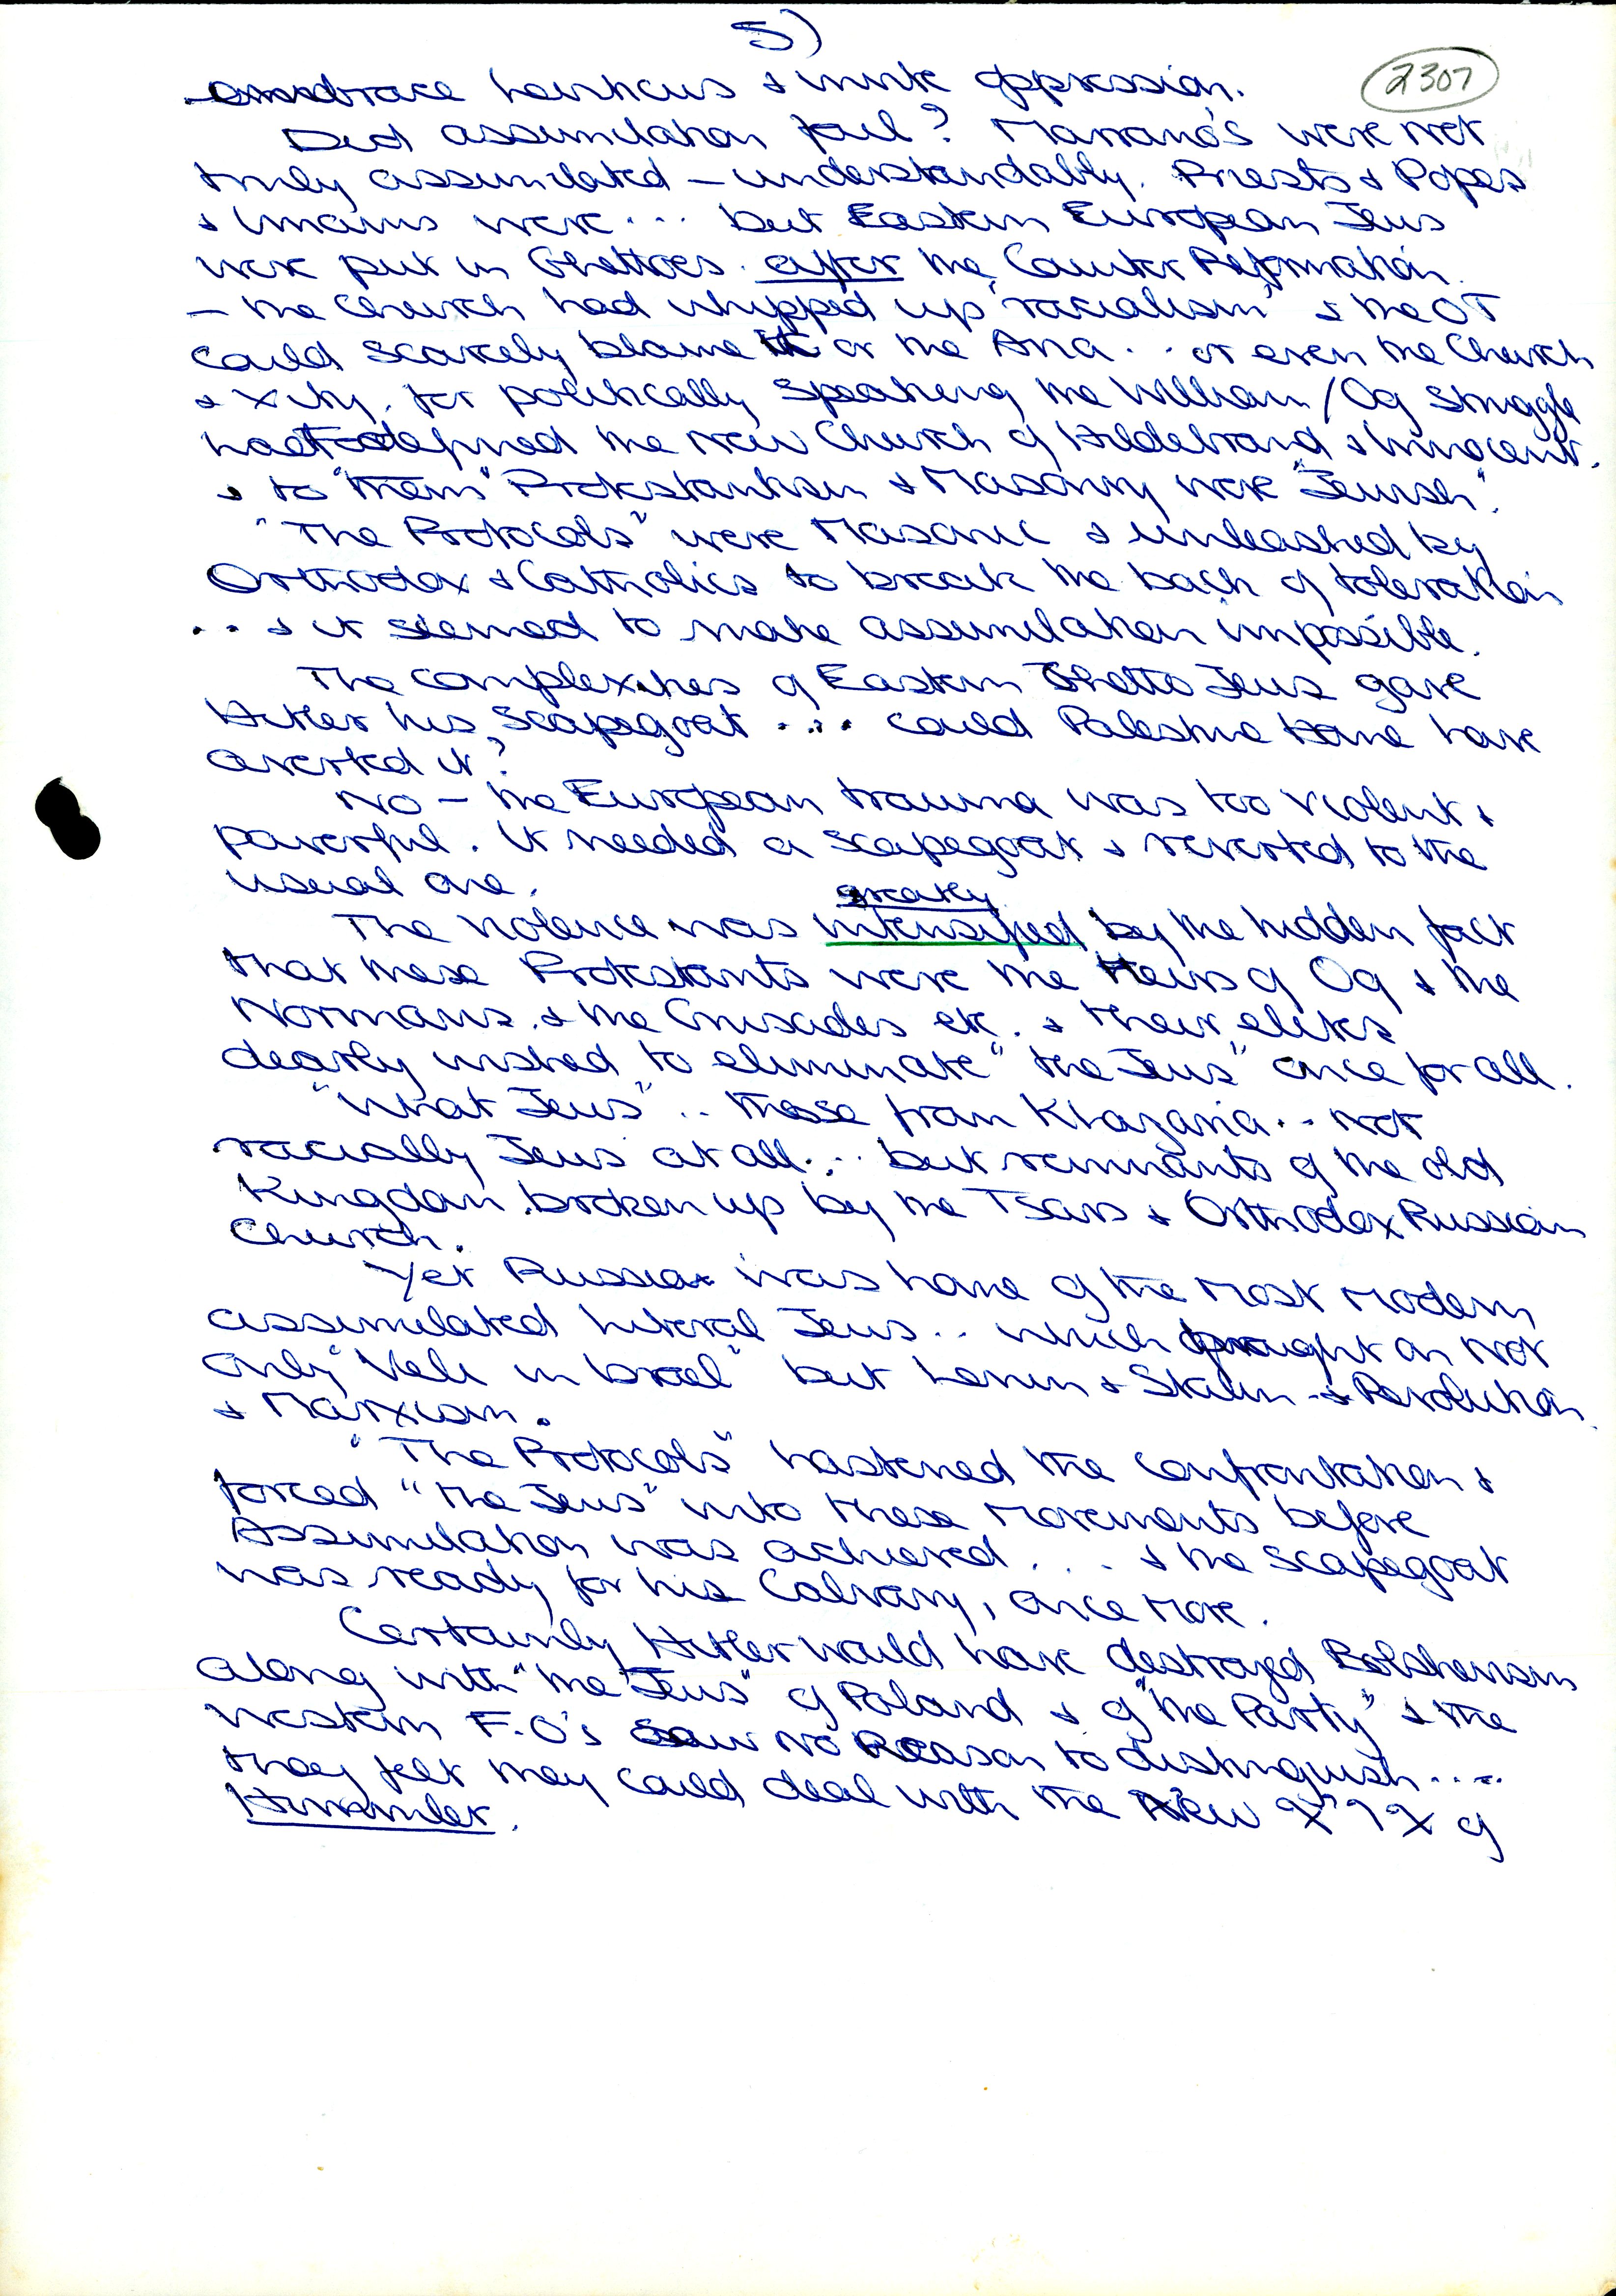 5)
2307
embrace heretics & invite oppression.
Did assimilation fail? Marrano's were not
truly assimilated – understandably. Priests & Popes
& Imams were ... but Eastern European Jews
were put in Ghettoes. after the Counter Reformation.
– the Church had whipped up "racialism" & the OT
could scarcely blame it or the Aria .. or even the Church
& Xity. for politically speaking the William / Og struggle
had defined the new Church of Hildebrand & Innocent.
& to "them" Protestantism & Masonry were "Jewish".
"The Protocols" were Masonic & unleashed by
Orthodox & Catholics to break the back of toleration
... & it seemed to make assimilation impossible.
The complexities of Eastern Ghetto Jews gave
Hitler his scapegoat .... could Palestine Home have
averted it?
No – the European trauma was too violent &
powerful. It needed a scapegoat & reverted to the
usual one.
greatly
The violence was intensified by the hidden fact
that these Protestants were the Heirs of Og & the
Normans. & the Crusades etc. & their elites
clearly wished to eliminate "the Jews" once for all.
"What Jews" .. those from Khazaria .. not
racially Jews at all ... but remnants of the old
Kingdom. broken up by the Tsars & Orthodox Russian
Church.
Yet Russia was home of the most modern
assimilated liberal Jews .. which brought on not
only "Veli in Israel" but Lenin & Stalin & Revolution
& Marxism.
"The Protocols" hastened the confrontation &
forced "the Jews" into these movements before
Assimilation was achieved ... & the scapegoat
was ready for his Calvary, once more.
Certainly Hitler would have destroyed Bolshevism
along with "the Jews" of Poland & of "the Party" & the
Western F.O's saw no Reason to distinguish ....
they felt they could deal with the New of